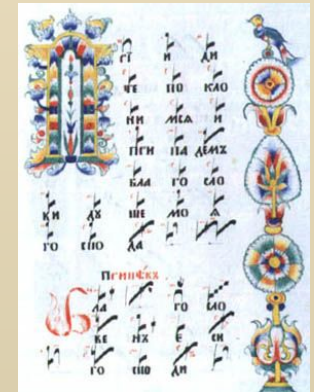 П гї и ди
че по кло
ни мсѧ и
при па демъ
бла го сло
ви дꙋ ше мо ѧ
го спо да
Припѣвъ
Бла го сло
ве нъ е си
го спо ди